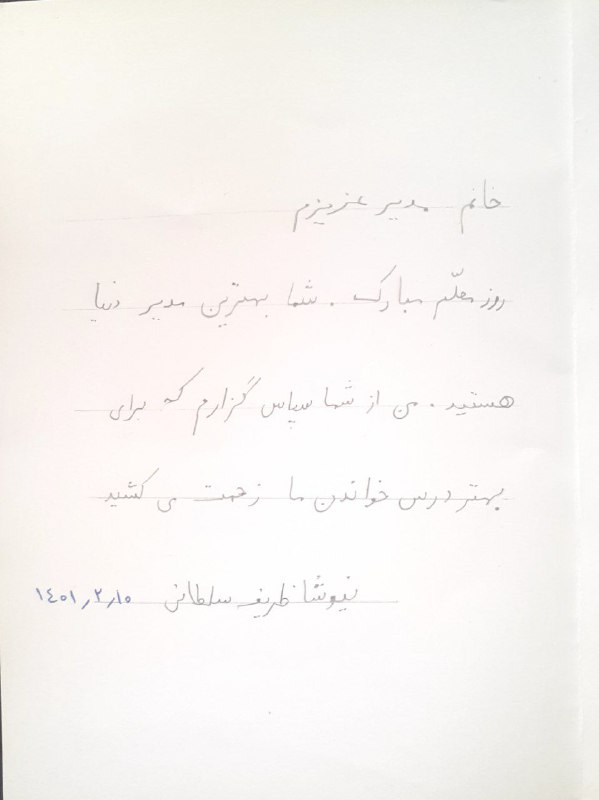 خانم مدیر عزیزم
روز معلّم مبارک . شما بهترین مدیر دنیا
هستید . من از شما سپاس گزارم که برای
بهتر درس خواندن ما زحمت می کشید
نیوشا ظریف سلطانی ۱۴۰۱٫۲٫۱۰